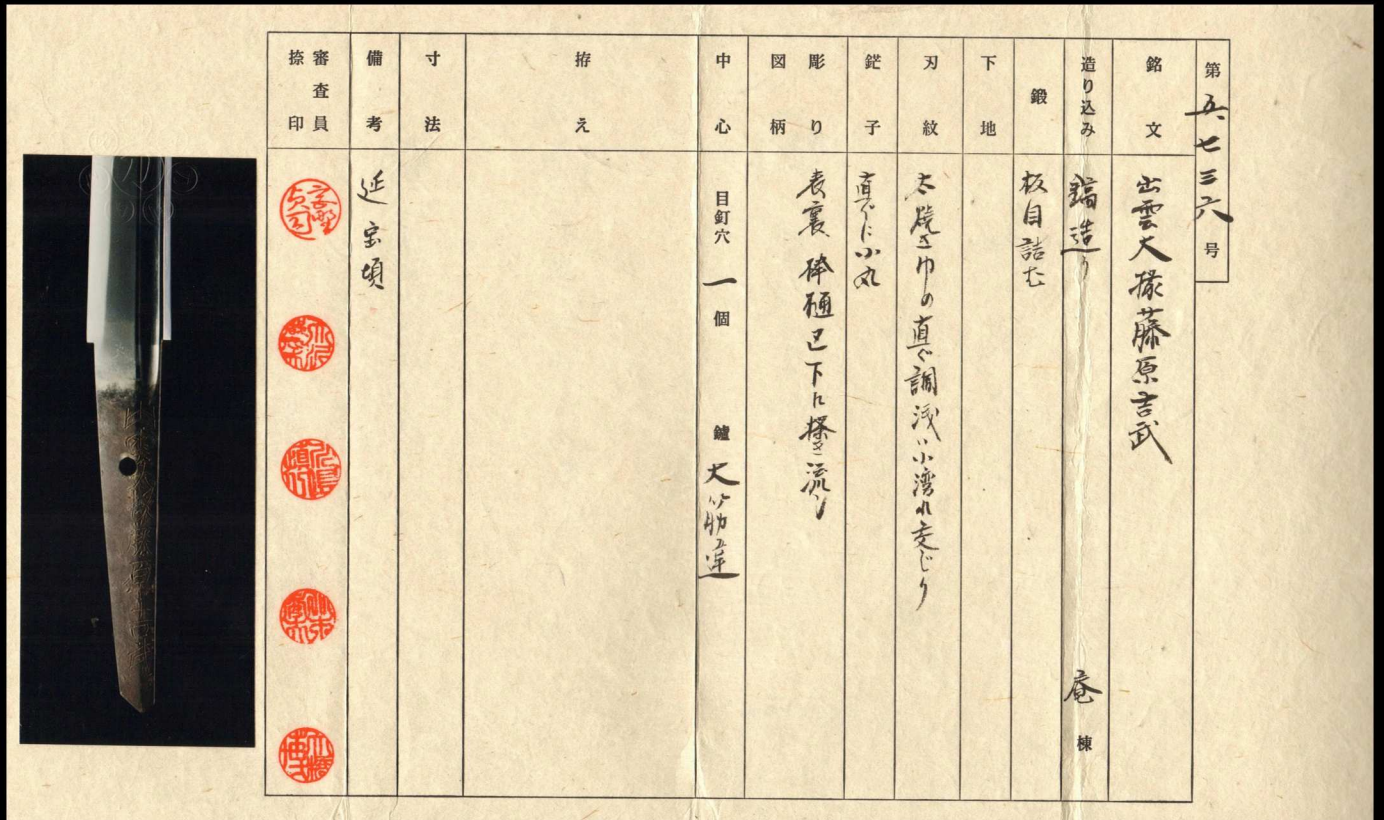 第五七三六号
銘文
出雲大掾藤原吉武
造り込み
鎬造り 庵棟
鍛
板目詰む
下地
刃紋
太焼き巾の直ぐ調浅い小湾れ交じり
鋩子
直ぐに小丸
彫り
図柄
表裏棒樋 区下に掻き流し
中心
目釘穴 一個 鑢 大筋違
拵え
寸法
備考
延宝頃
審査員
捺印